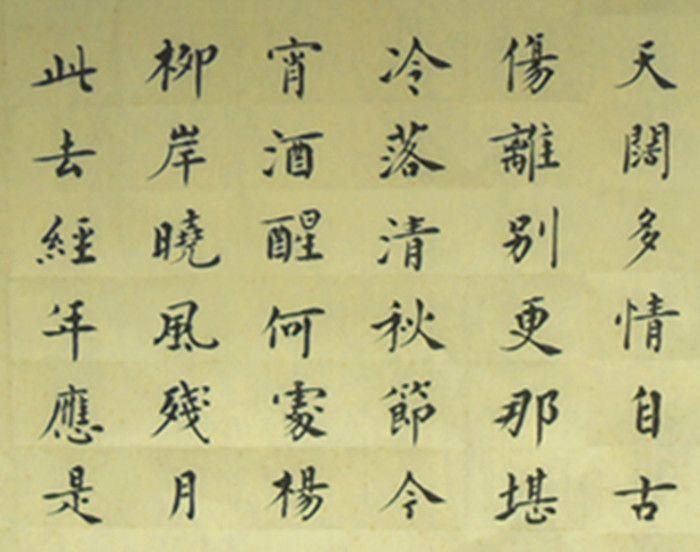 天闊多情自古
傷離別更那堪
冷落清秋節今
宵酒醒何處楊
柳岸曉風殘月
此去經年應是